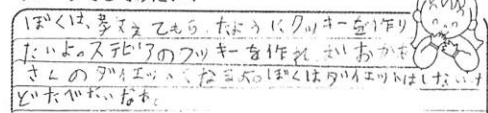 ぼくは、教えてもらったようにクッキーを作り
たいよ。ステビアのクッキーを作れば おかあ
さんのダイエットになるね。ぼくはダイエットはしないけ
どたべたいなあ。